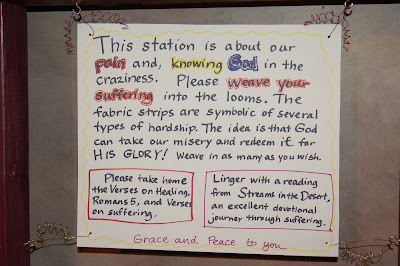 This station is about our
pain and, knowing God in the
craziness. Please weave your
suffering into the looms. The
fabric strips are symbolic of several
types of hardship. The idea is that God
can take our misery and redeem it for
HIS GLORY! Weave in as many as you wish.
Please take home
the Verses on Healing,
Romans 5, and Verses
on suffering.
Linger with a reading
from Streams in the Desert,
an excellent devotional
journey through suffering.
Grace and Peace to you